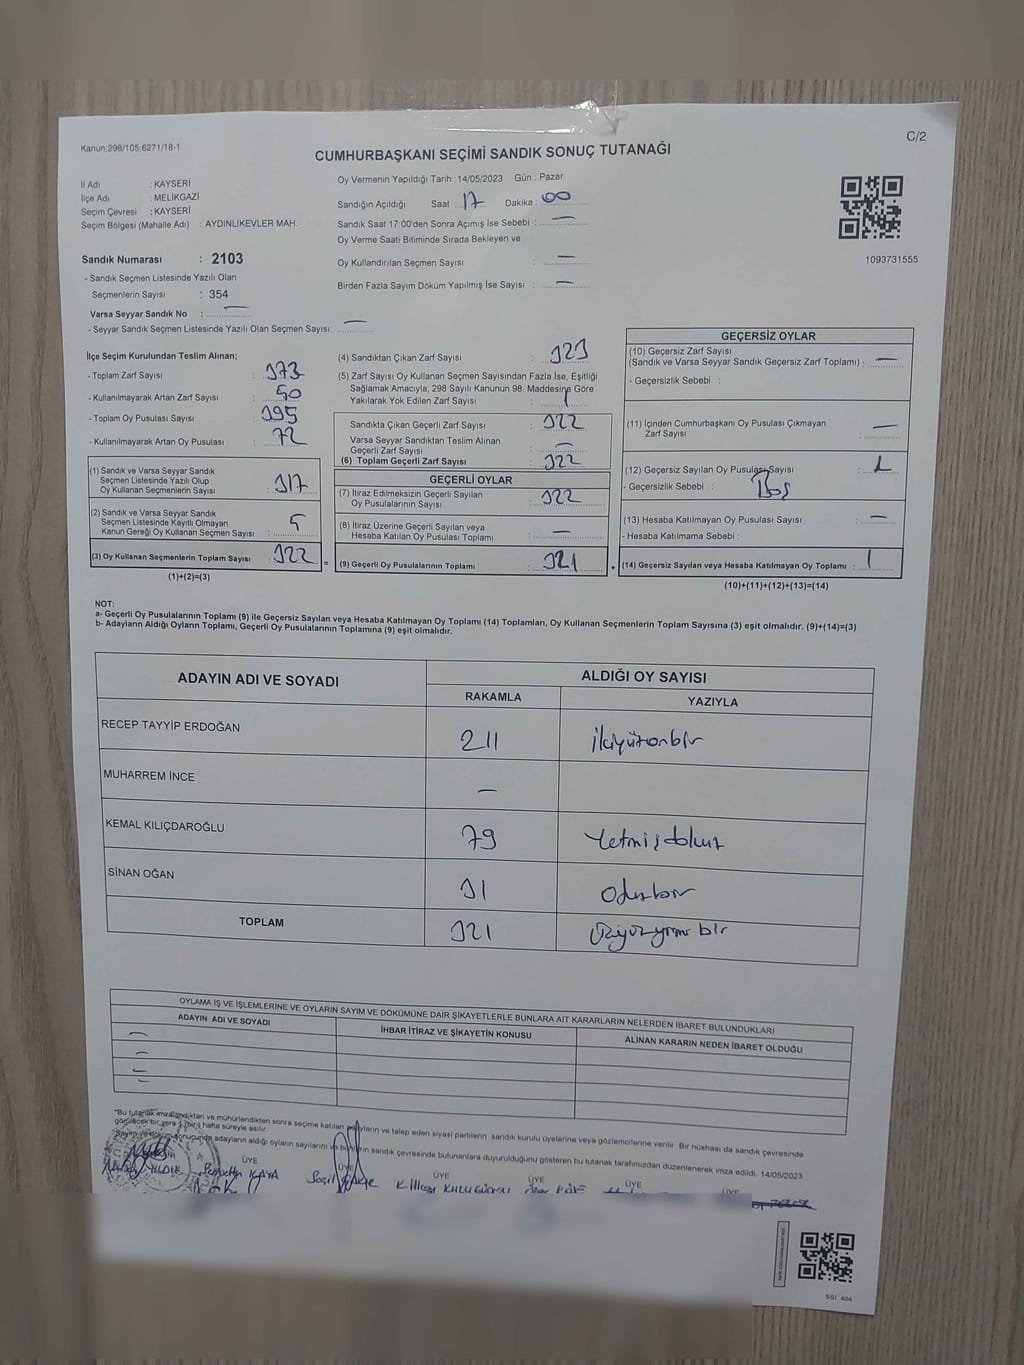 C/2
Kanun:298/105;6271/18-1
CUMHURBAŞKANI SEÇİMİ SANDIK SONUÇ TUTANAĞI
İl Adı : KAYSERİ
İlçe Adı : MELİKGAZİ
Seçim Çevresi : KAYSERİ
Seçim Bölgesi (Mahalle Adı) : AYDINLIKEVLER MAH.
Sandık Numarası : 2103
- Sandık Seçmen Listesinde Yazılı Olan
Seçmenlerin Sayısı : 354
Varsa Seyyar Sandık No : —
- Seyyar Sandık Seçmen Listesinde Yazılı Olan Seçmen Sayısı: —
Oy Vermenin Yapıldığı Tarih :14/05/2023 Gün : Pazar
Sandığın Açıldığı Saat : 17 Dakika : 00
Sandık Saat 17:00'den Sonra Açımış İse Sebebi : —
Oy Verme Saati Bitiminde Sırada Bekleyen ve
Oy Kullandırılan Seçmen Sayısı : —
Birden Fazla Sayım Döküm Yapılmış İse Sayısı : —
1093731555
İlçe Seçim Kurulundan Teslim Alınan;
- Toplam Zarf Sayısı : 373
- Kullanılmayarak Artan Zarf Sayısı : 50
- Toplam Oy Pusulası Sayısı : 395
- Kullanılmayarak Artan Oy Pusulası : 72
(1) Sandık ve Varsa Seyyar Sandık
Seçmen Listesinde Yazılı Olup
Oy Kullanan Seçmenlerin Sayısı : 317
(2) Sandık ve Varsa Seyyar Sandık
Seçmen Listesinde Kayıtlı Olmayan
Kanun Gereği Oy Kullanan Seçmen Sayısı : 5
(3) Oy Kullanan Seçmenlerin Toplam Sayısı : 322
(1)+(2)=(3)
(4) Sandıktan Çıkan Zarf Sayısı : 323
(5) Zarf Sayısı Oy Kullanan Seçmen Sayısından Fazla İse, Eşitliği
Sağlamak Amacıyla; 298 Sayılı Kanunun 98. Maddesine Göre
Yakılarak Yok Edilen Zarf Sayısı : 1
Sandıkta Çıkan Geçerli Zarf Sayısı : 322
Varsa Seyyar Sandıktan Teslim Alınan
Geçerli Zarf Sayısı : —
(6) Toplam Geçerli Zarf Sayısı : 322
GEÇERLİ OYLAR
(7) İtiraz Edilmeksizin Geçerli Sayılan
Oy Pusulalarının Sayısı : 322
(8) İtiraz Üzerine Geçerli Sayılan veya
Hesaba Katılan Oy Pusulası Toplamı : —
(9) Geçerli Oy Pusulalarının Toplamı : 321
GEÇERSİZ OYLAR
(10) Geçersiz Zarf Sayısı
(Sandık ve Varsa Seyyar Sandık Geçersiz Zarf Toplamı) : —
- Geçersizlik Sebebi :
(11) İçinden Cumhurbaşkanı Oy Pusulası Çıkmayan
Zarf Sayısı : —
(12) Geçersiz Sayılan Oy Pusulası Sayısı : 1
- Geçersizlik Sebebi : Boş
(13) Hesaba Katılmayan Oy Pusulası Sayısı : —
- Hesaba Katılmama Sebebi :
(14) Geçersiz Sayılan veya Hesaba Katılmayan Oy Toplamı : 1
(10)+(11)+(12)+(13)=(14)
NOT:
a- Geçerli Oy Pusulalarının Toplamı (9) ile Geçersiz Sayılan veya Hesaba Katılmayan Oy Toplamı (14) Toplamları, Oy Kullanan Seçmenlerin Toplam Sayısına (3) eşit olmalıdır. (9)+(14)=(3)
b- Adayların Aldığı Oyların Toplamı, Geçerli Oy Pusulalarının Toplamına (9) eşit olmalıdır.
ADAYIN ADI VE SOYADI ALDIĞI OY SAYISI
RAKAMLA YAZIYLA
RECEP TAYYİP ERDOĞAN 211 ikiyüzonbir
MUHARREM İNCE —
KEMAL KILIÇDAROĞLU 79 Yetmişdokuz
SİNAN OĞAN 31 Otuzbir
TOPLAM 321 Üçyüzyirmi bir
OYLAMA İŞ VE İŞLEMLERİNE VE OYLARIN SAYIM VE DÖKÜMÜNE DAİR ŞİKAYETLERLE BUNLARA AİT KARARLARIN NELERDEN İBARET BULUNDUKLARI
ADAYIN ADI VE SOYADI İHBAR İTİRAZ VE ŞİKAYETİN KONUSU ALINAN KARARIN NEDEN İBARET OLDUĞU
"Bu tutanak imzalandıktan ve mühürlendikten sonra seçime katılan adayların ve talep eden siyasi partilerin sandık kurulu üyelerine veya gözlemcilerine verilir. Bir nüshası da sandık çevresinde
görülecek bir yere 1 (bir) hafta süreyle asılır.
Sayım ve döküm sonucunda adayların aldığı oyların sayılarını ve bunların sandık çevresinde bulunanlara duyurulduğunu gösteren bu tutanak tarafımızdan düzenlenerek imza edildi. 14/05/2023
ÜYE ÜYE ÜYE ÜYE ÜYE ÜYE
KAYA
SSI 404